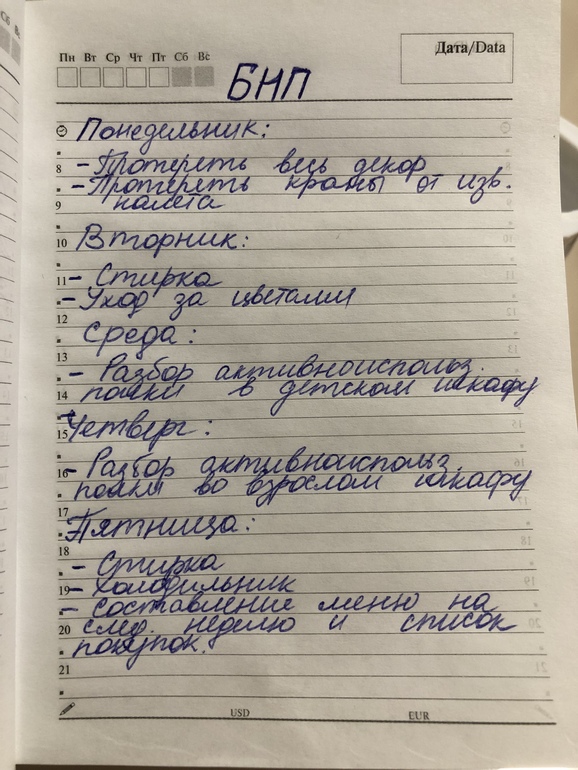 Пн Вт Ср Чт Пт Сб Вс
Дата/Data
БНП
Понедельник:
8 - Протереть весь декор
- Протереть краны от изв.
9 налета
10 Вторник:
11 - Стирка
- Уход за цветами
12
Среда:
13
- Разбор активноиспольз.
14 полки в детском шкафу
Четверг:
15
16 - Разбор активноиспольз.
полки во взрослом шкафу
17
Пятница:
18
- Стирка
19 - Холодильник
- Составление меню на
20 след. неделю и список
покупок.
21
USD EUR